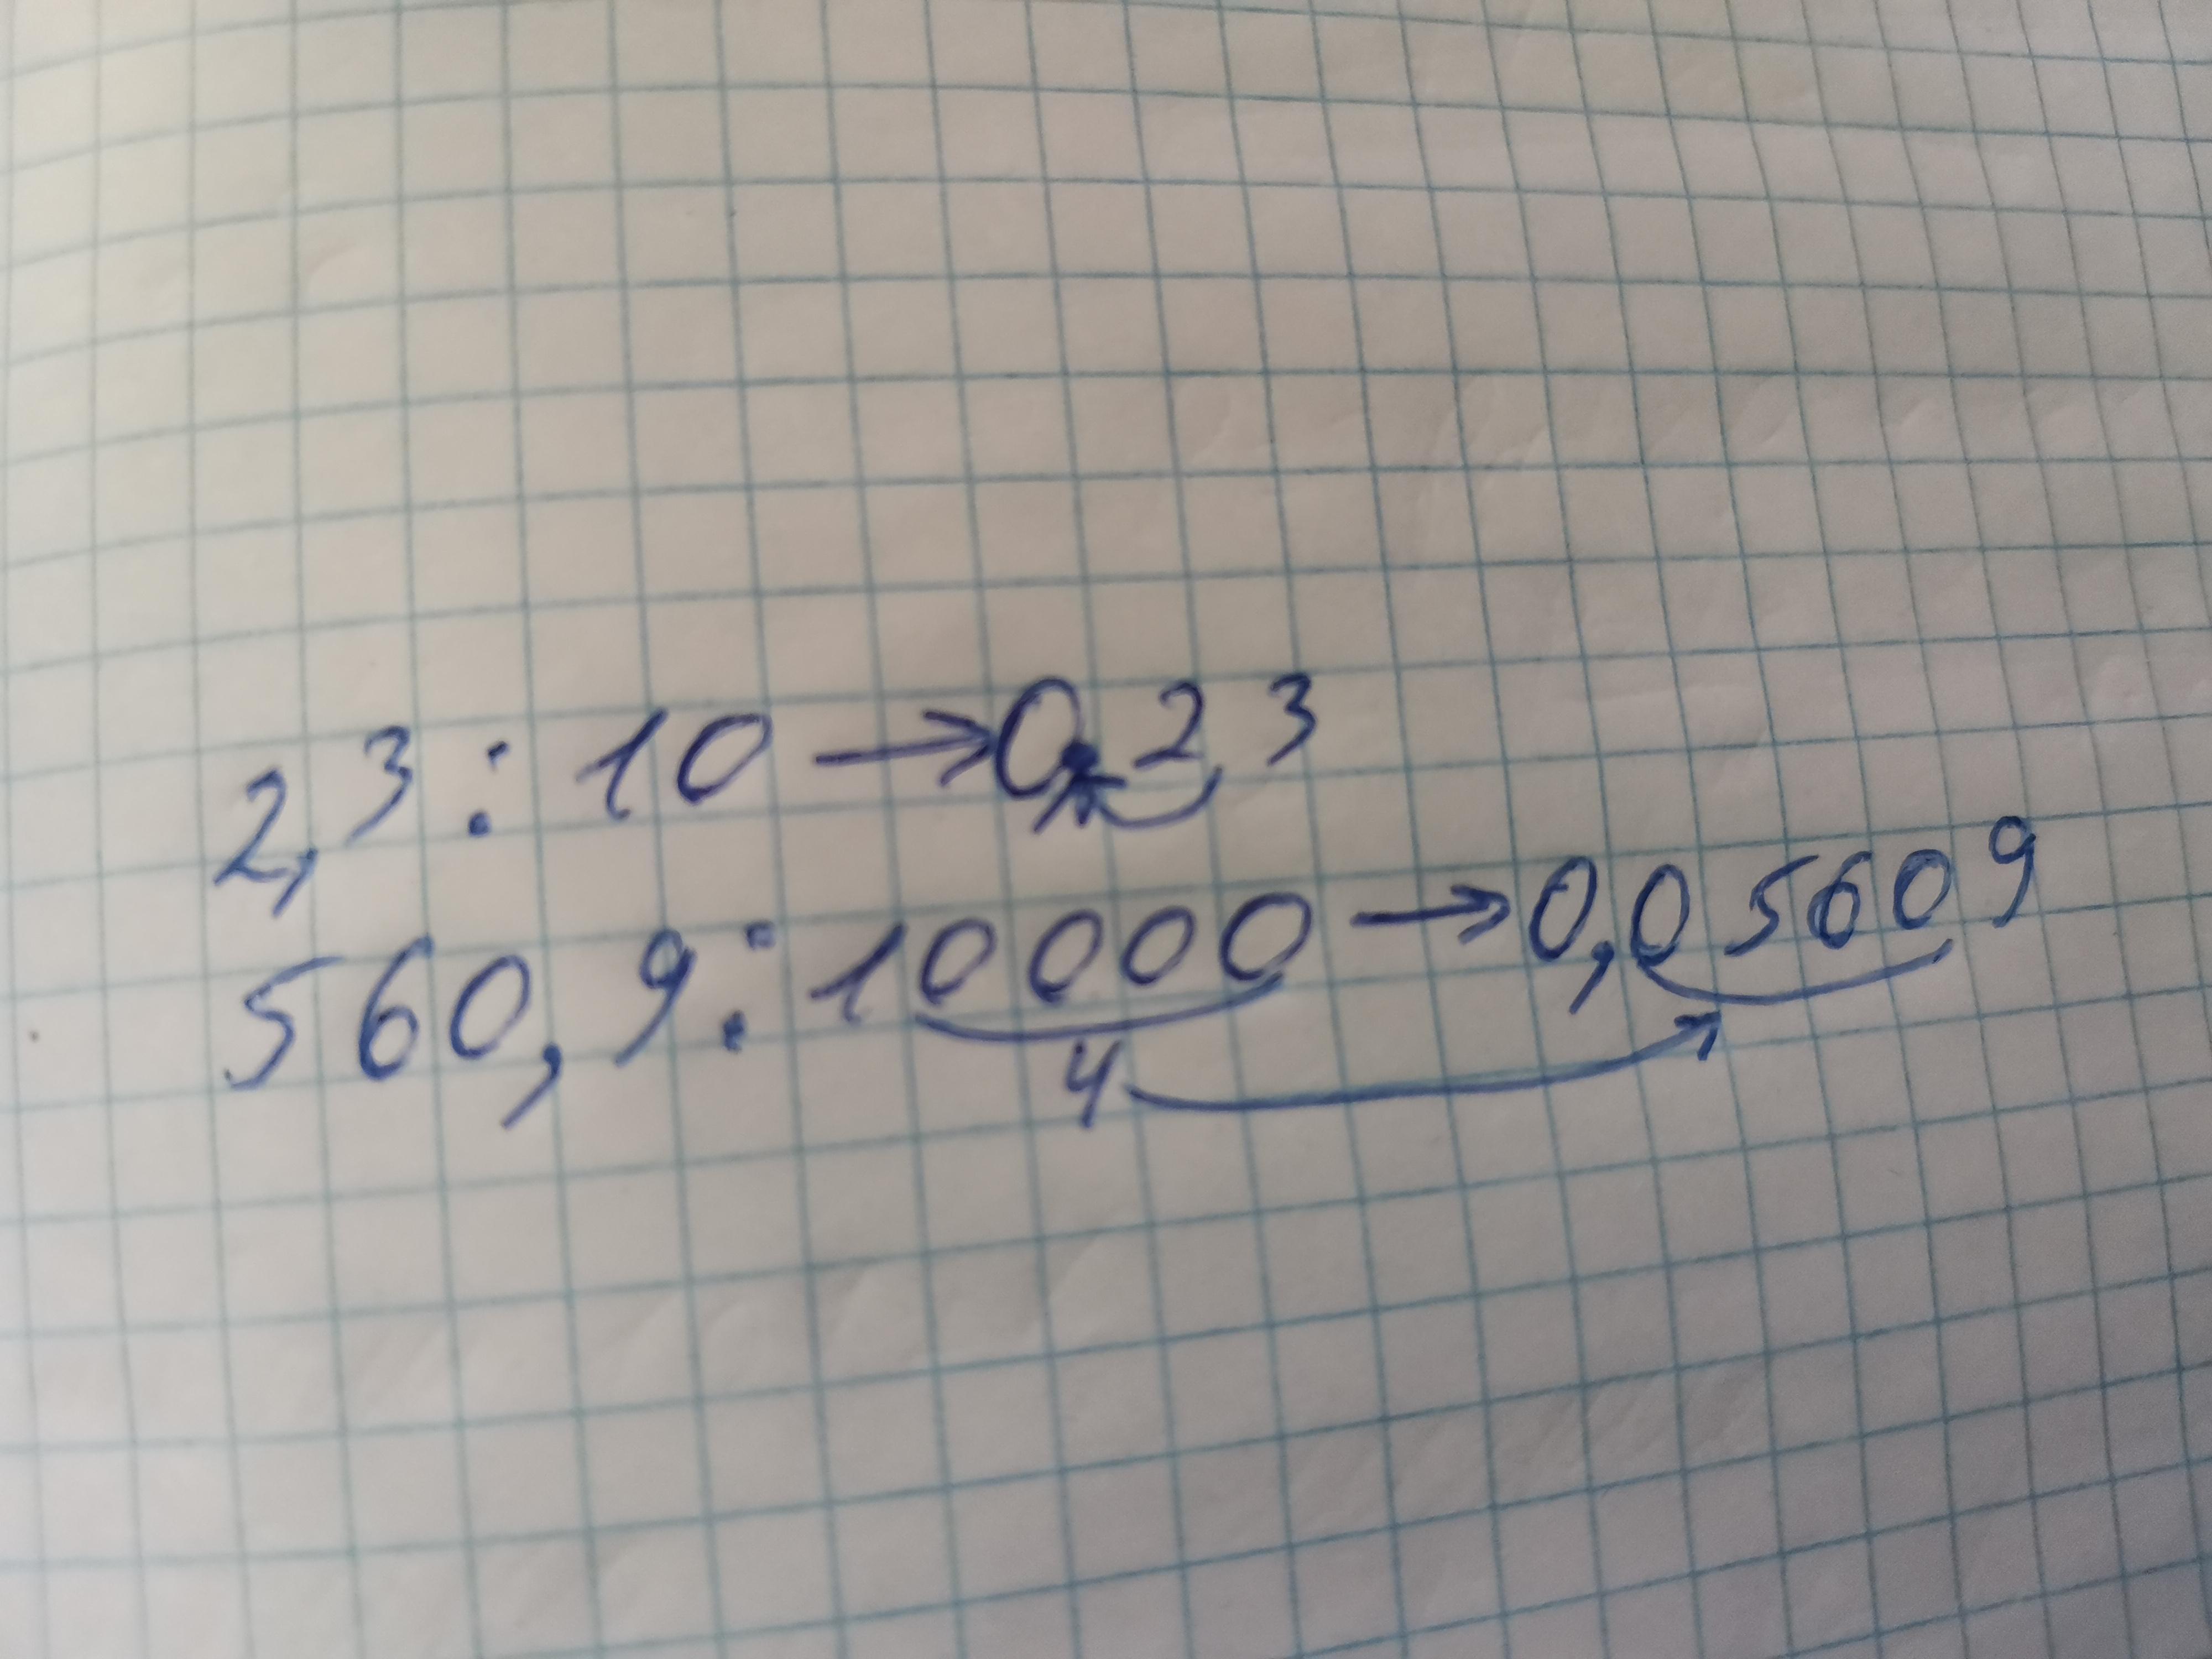 2,3 : 10 → 0,2,3
560,9 : 10000 → 0,05609
4